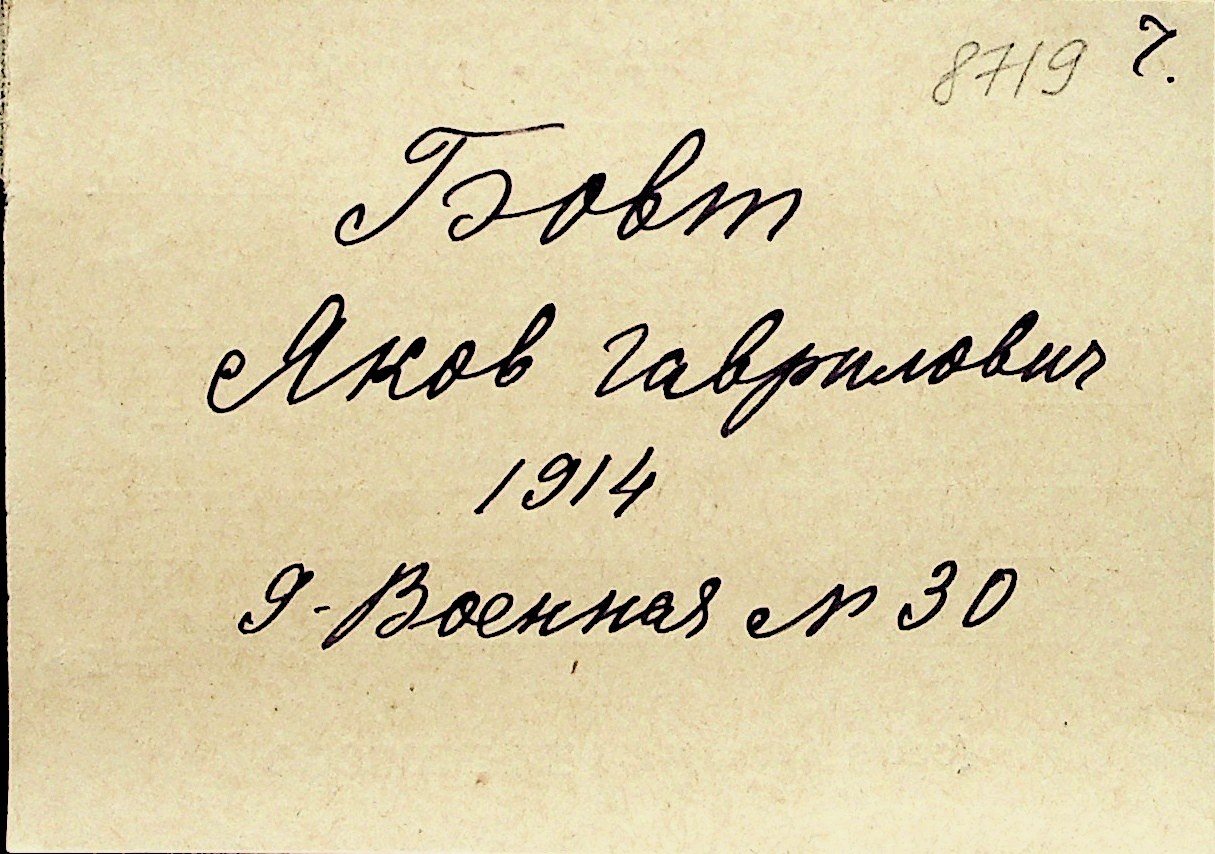 8719 7.
Бовт
Яков гаврилович
1914
Я-Военная № 30